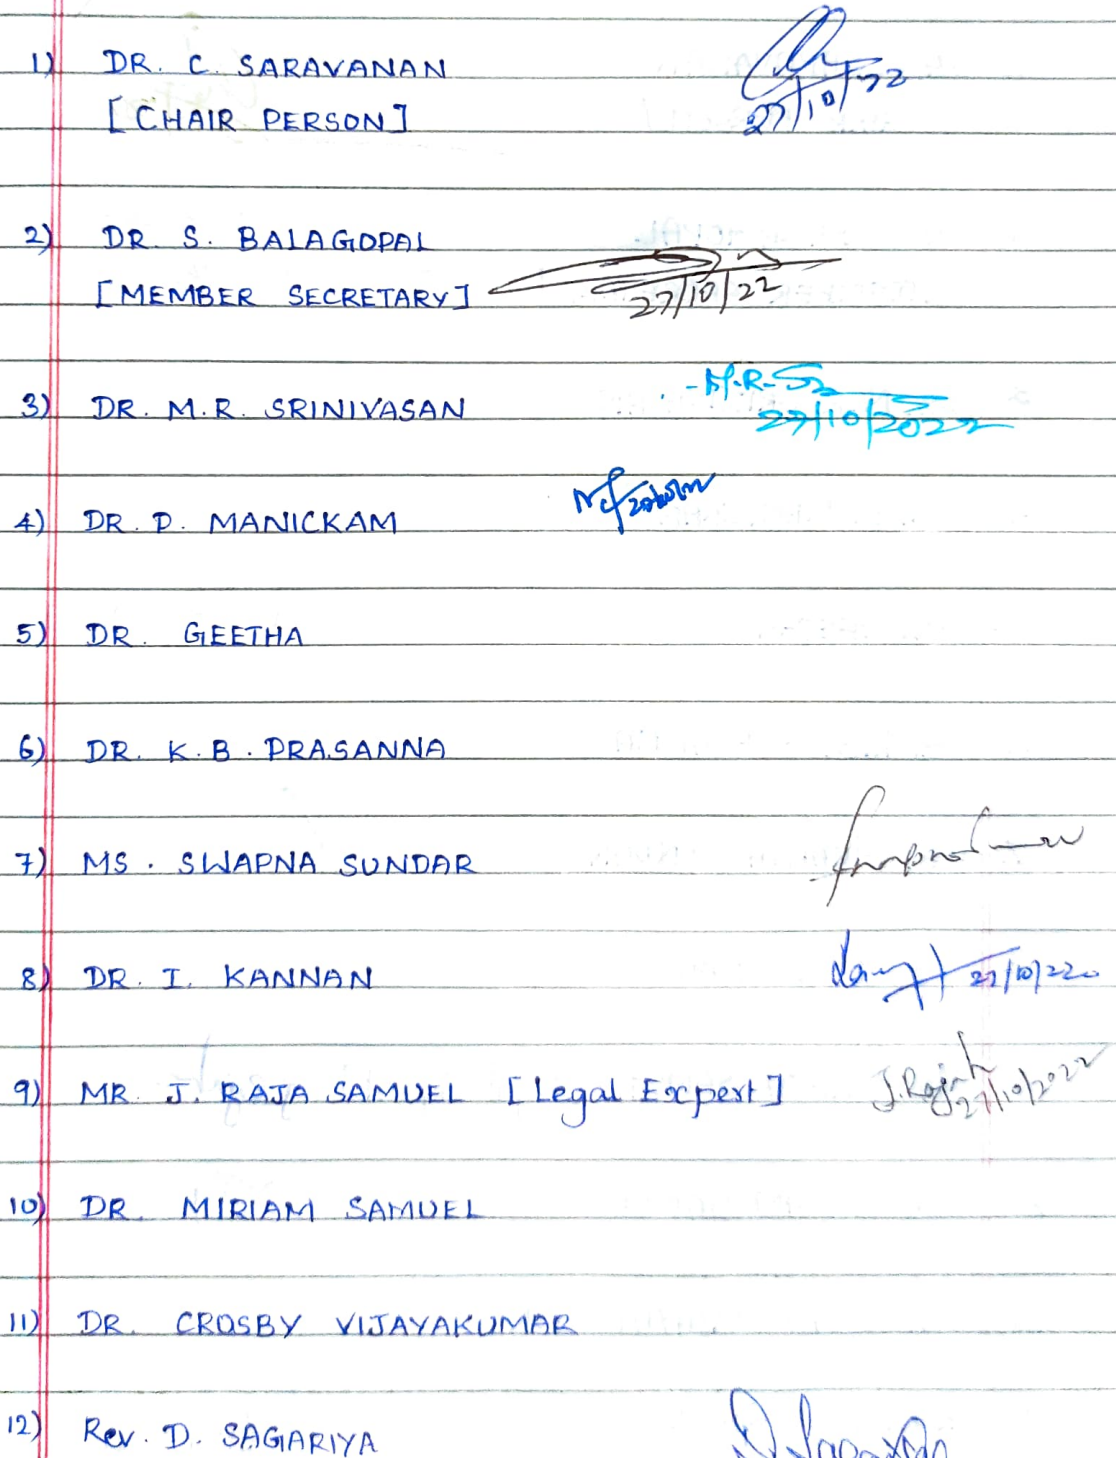 1) DR. C. SARAVANAN
27/10/22
[CHAIR PERSON]
2) DR. S. BALAGOPAL
[MEMBER SECRETARY]
27/10/22
3) DR. M.R. SRINIVASAN
M.R.
27/10/2022
4) DR. P. MANICKAM
5) DR. GEETHA
6) DR. K.B. PRASANNA
7) MS. SWAPNA SUNDAR
8) DR. I. KANNAN
27/10/22
9) MR. J. RAJA SAMUEL [Legal Expert]
27/10/2022
10) DR. MIRIAM SAMUEL
11) DR. CROSBY VIJAYAKUMAR
12) Rev. D. SAGARIYA